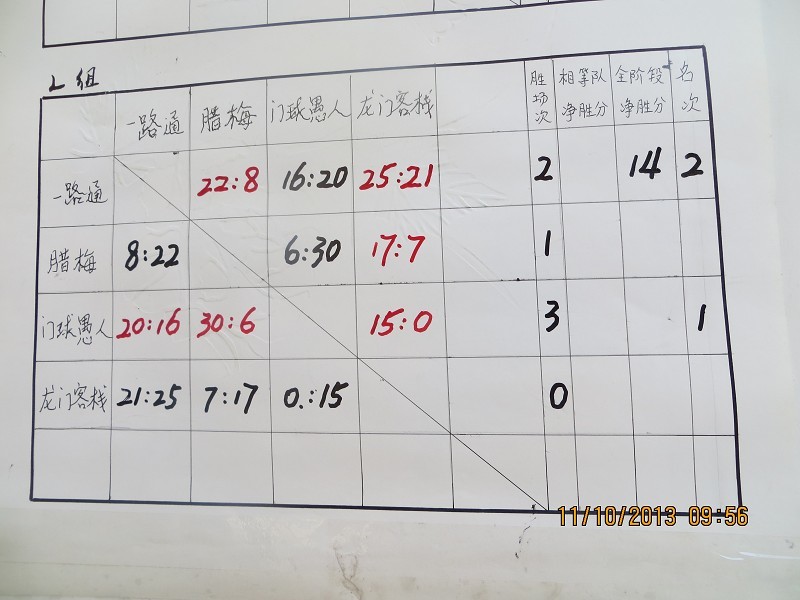 L组
一路通 腊梅 门球愚人 龙门客栈 胜场次 相等队净胜分 全阶段净胜分 名次
一路通 22:8 16:20 25:21 2 14 2
腊梅 8:22 6:30 17:7 1
门球愚人 20:16 30:6 15:0 3 1
龙门客栈 21:25 7:17 0:15 0
11/10/2013 09:56